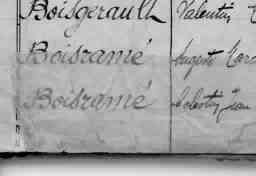 Boisgerault Valentin
Boisramé August
Boisramé Célestin Jean